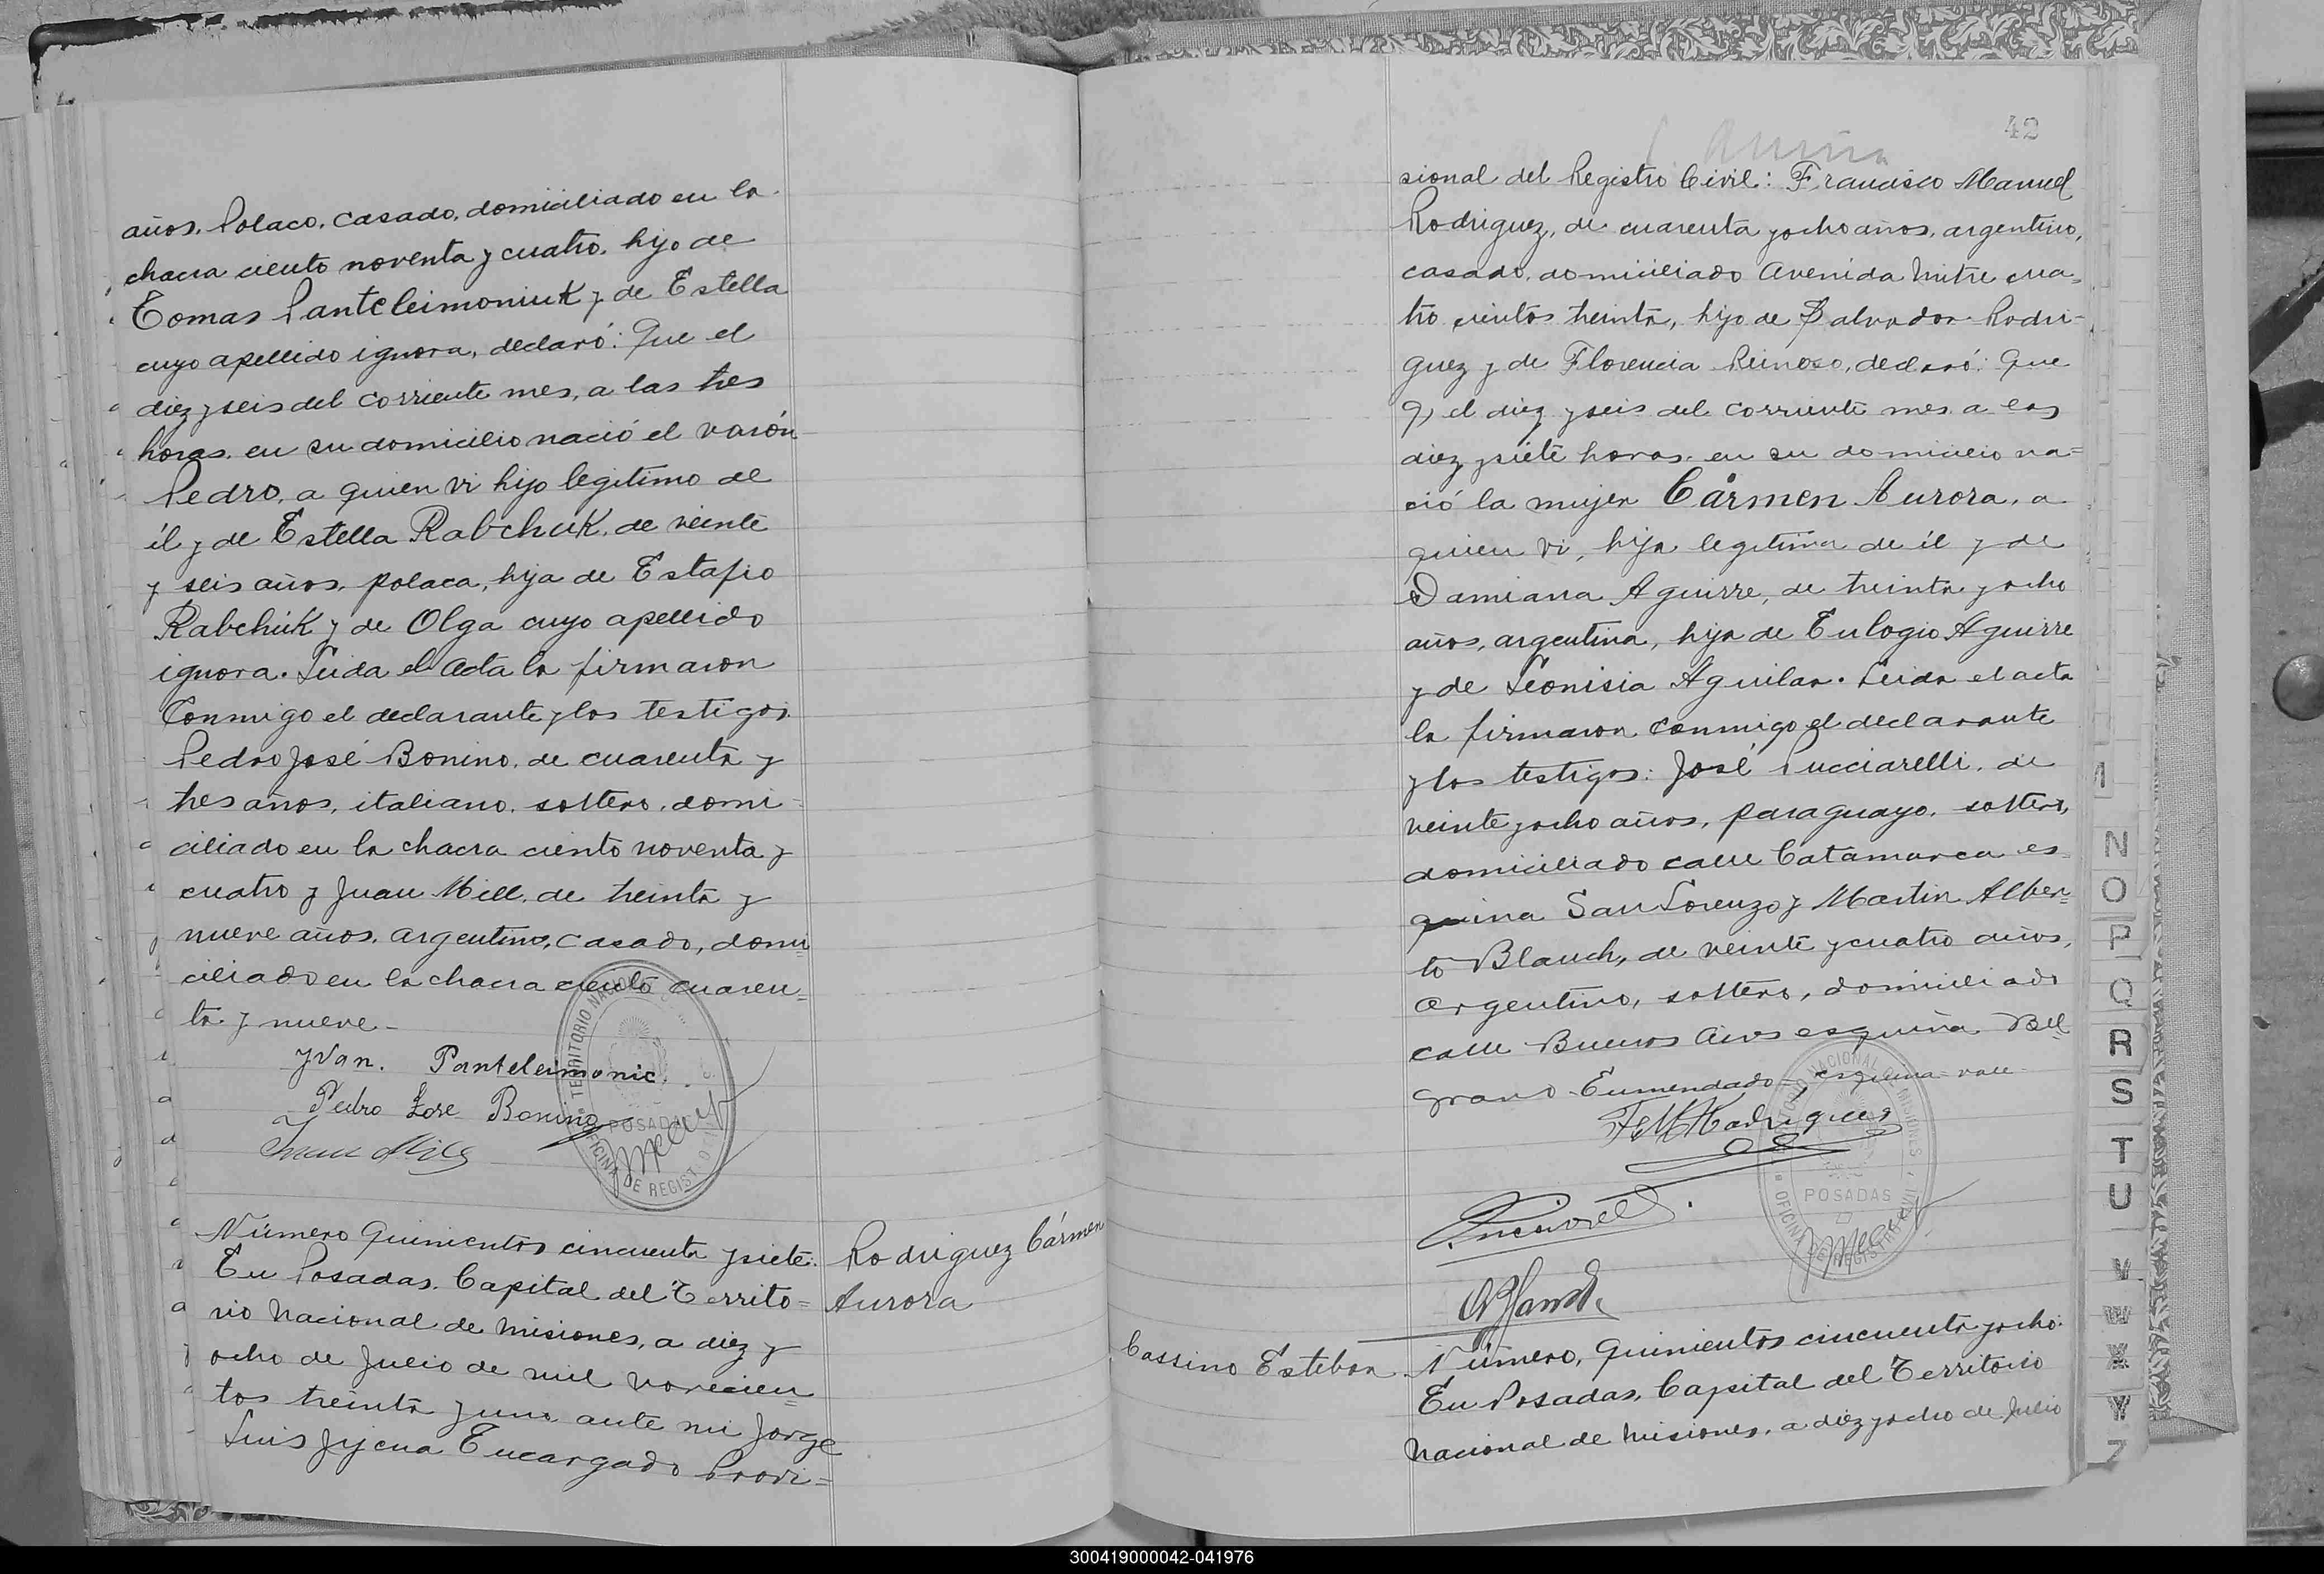 años, Polaco, casado, domiciliado en la
chacra ciento noventa y cuatro, hijo de
Tomas Panteleimoniuk y de Estella
cuyo apellido ignora, declaró: Que el
diez y seis del corriente mes, a las tres
horas en su domicilio nació el varón
Pedro, a quien vi hijo legitimo de
él y de Estella Rabchuk, de veinte
y seis años, polaca, hija de Estafio
Rabchuk y de Olga cuyo apellido
ignora. Leida el acta la firmaron
Conmigo el declarante y los testigos
Pedro José Bonino, de cuarenta y
tres años, italiano, soltero, domi-
ciliado en la chacra ciento noventa y
cuatro y Juan Mill, de treinta y
nueve años, argentino, casado, domi=
ciliado en la chacra ciento cuaren=
ta y nueve-
Yvan. Panteleimonic.
Pedro Jose Bonino
Juan Mill
TERRITORIO NACIONAL
POSADAS
OFICINA DE REGISTRO CIVIL
Número Quinientos cincuenta y siete:
En Posadas, Capital del Territo=
rio Nacional de Misiones, a diez y
ocho de Julio de mil novecien=
tos treinta y uno ante mi Jorge
Luis Jijena Encargado Provi=
Rodriguez Cármen
Aurora
42
sional del Registro Civil: Francisco Manuel
Rodriguez, de cuarenta y ocho años, argentino,
casado, domiciliado Avenida Mitre cua=
tro cientos treinta, hijo de Salvador Rodri-
guez y de Florencia Reinoso, declaró: Que
el diez y seis del corriente mes a las
diez y siete horas en su domicilio na=
ció la mujer Cármen Aurora, a
quien vi, hija legitima de él y de
Damiana Aguirre, de treinta y ocho
años, argentina, hija de Eulogio Aguirre
y de Leonisia Aguilar. Leida el acta
la firmaron conmigo el declarante
y los testigos: José Pucciarelli, de
veinte y ocho años, paraguayo, soltero,
domiciliado calle Catamarca es-
quina San Lorenzo y Martin Alber=
to Blanch, de veinte y cuatro años,
argentino, soltero, domiciliado
calle Buenos Aires esquina Bel=
grano Enmendado, esquina=vale-
F M Rodriguez
TERRITORIO NACIONAL DE MISIONES
POSADAS
OFICINA DE REGISTRO CIVIL
Pucciarelli
Blanch
Cassino Esteban
Número, Quinientos cincuenta y ocho:
En Posadas, Capital del Territorio
Nacional de Misiones, a diez y ocho de Julio
N
O
P
Q
R
S
T
U
V
W
X
Y
Z
300419000042-041976